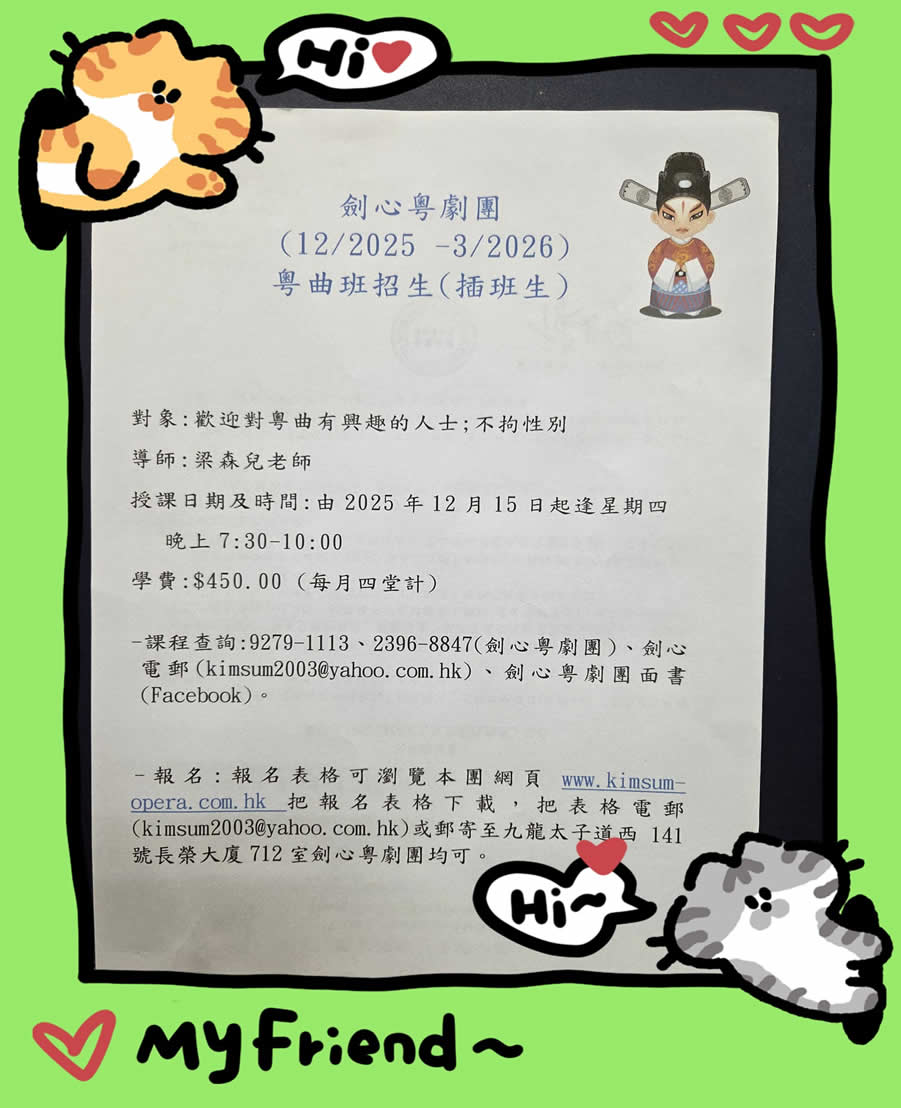 Hi
劍心粵劇團
(12/2025 -3/2026)
粵曲班招生(插班生)
對象:歡迎對粵曲有興趣的人士;不拘性別
導師:梁森兒老師
授課日期及時間:由 2025 年 12 月 15 日起逢星期四
晚上 7:30-10:00
學費:$450.00 (每月四堂計)
-課程查詢:9279-1113、2396-8847(劍心粵劇團)、劍心
電郵(kimsum2003@yahoo.com.hk)、劍心粵劇團面書
(Facebook)。
-報名:報名表格可瀏覽本團網頁 www.kimsum-
opera.com.hk 把報名表格下載，把表格電郵
(kimsum2003@yahoo.com.hk)或郵寄至九龍太子道西 141
號長榮大廈 712 室劍心粵劇團均可。
Hi~
My Friend~